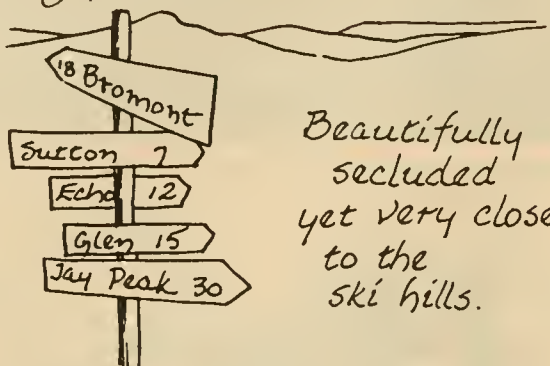 18 Bromont
Sutton 7
Echo 12
Glen 15
Jay Peak 30
Beautifully
secluded
yet very close
to the
ski hills.